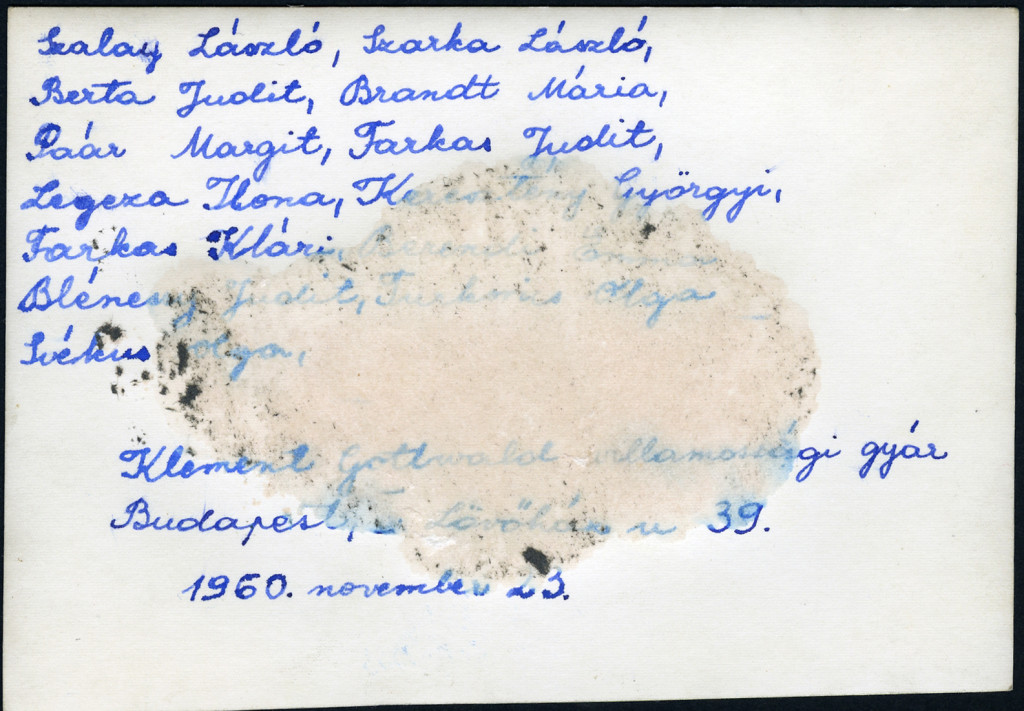 Szalay László, Szarka László,
Berta Judit, Brandt Mária,
Paár Margit, Farkas Judit,
Legeza Ilona, Keresztény Györgyi,
Farkas Klári,
Blénessy Judit, Olga
Klement Gottwald villamossági gyár
Budapest, Lövőház u 39.
1960. november 23.